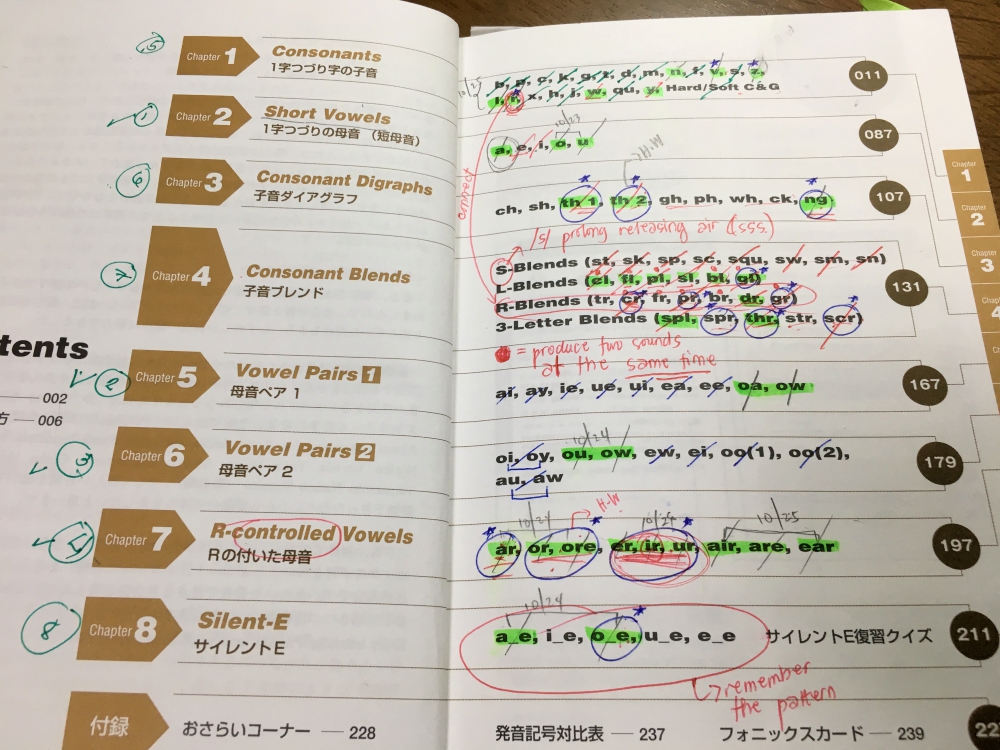 tents
002
方 — 006
5
Chapter 1
Consonants
1字つづり字の子音
10/25
b, p, c, k, g, t, d, m, n, f, v, s, z,
l, r, x, h, j, w, qu, y, Hard/Soft C&G
011
1
Chapter 2
Short Vowels
1字つづりの母音 （短母音）
10/23
a, e, i, o, u
087
H.W
6
Chapter 3
Consonant Digraphs
子音ダイアグラフ
ch, sh, th 1, th 2, gh, ph, wh, ck, ng
107
/s/ prolong releasing air (sss.)
7
Chapter 4
Consonant Blends
子音ブレンド
S-Blends (st, sk, sp, sc, squ, sw, sm, sn)
L-Blends (cl, fl, pl, sl, bl, gl)
R-Blends (tr, cr, fr, pr, br, dr, gr)
3-Letter Blends (spl, spr, thr, str, scr)
131
= produce two sounds
at the same time
2
Chapter 5
Vowel Pairs 1
母音ペア 1
ai, ay, ie, ue, ui, ea, ee, oa, ow
167
3
Chapter 6
Vowel Pairs 2
母音ペア 2
10/24
oi, oy, ou, ow, ew, ei, oo(1), oo(2),
au, aw
179
4
Chapter 7
R-controlled Vowels
Rの付いた母音
10/24
H.W
10/24
10/25
ar, or, ore, er, ir, ur, air, are, ear
197
8
Chapter 8
Silent-E
サイレントE
10/24
a_e, i_e, o_e, u_e, e_e サイレントE復習クイズ
211
remember
the pattern
付録
おさらいコーナー — 228
発音記号対比表 — 237
フォニックスカード — 239
22
Chapter
1
Chapter
2
Chapter
3